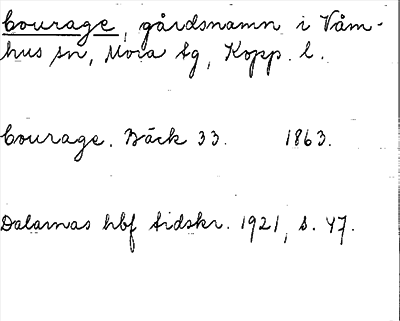 Courage, gårdsnamn i Våm-
hus sn, Mora tg, Kopp. l.
Courage. Bäck 33. 1863.
Dalarnas hbf tidskr. 1921, s. 47.